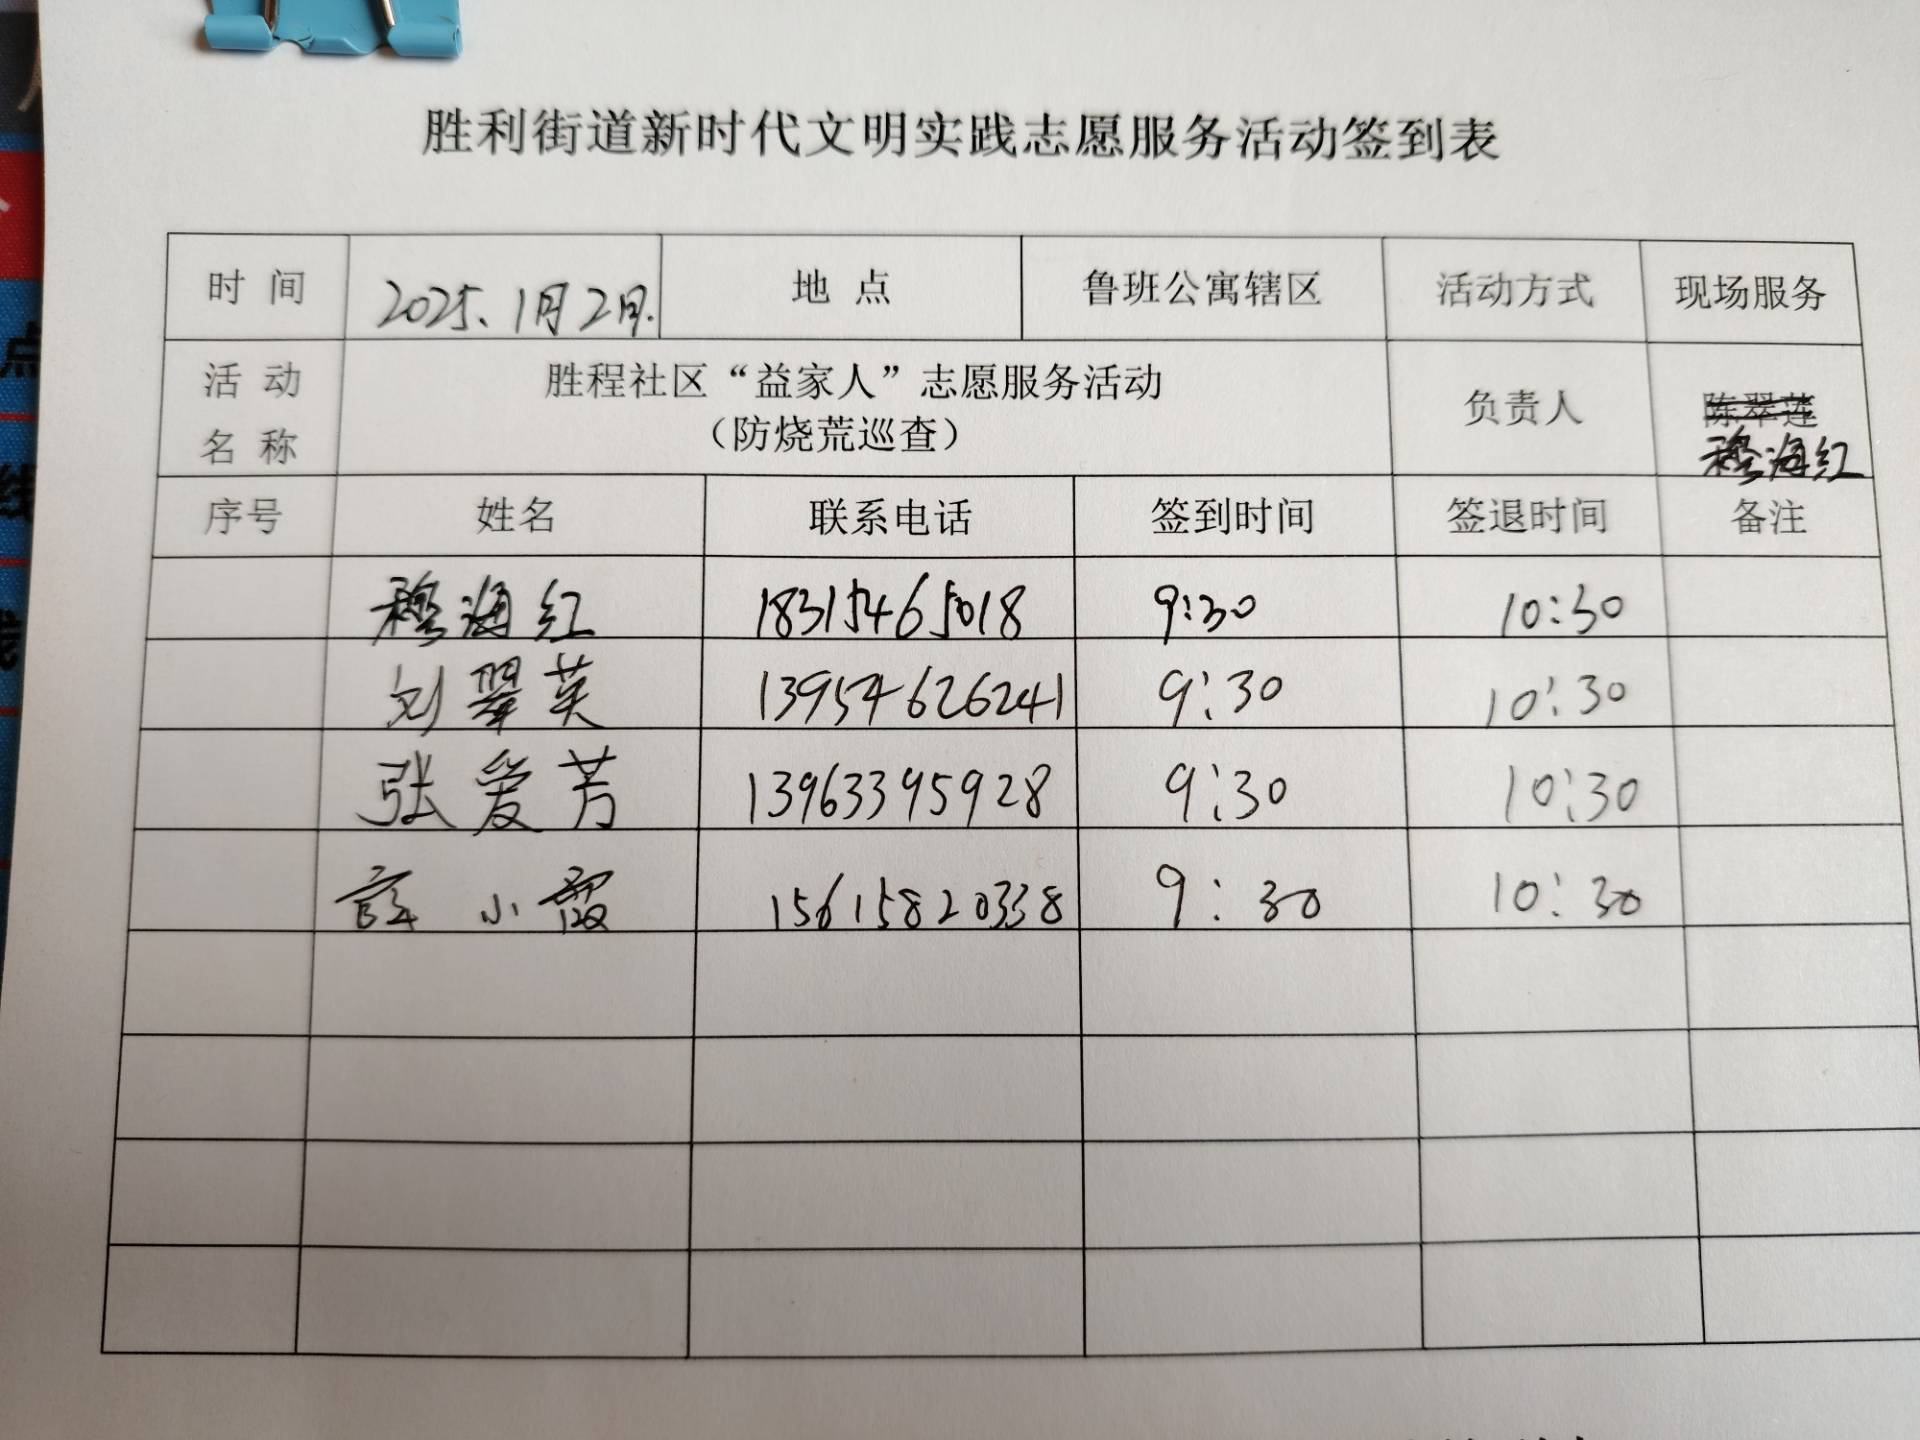 胜利街道新时代文明实践志愿服务活动签到表
时 间 2025.1月2日. 地 点 鲁班公寓辖区 活动方式 现场服务
活 动 名 称 胜程社区“益家人”志愿服务活动 负责人 陈翠莲
（防烧荒巡查） 穆海红
序号 姓名 联系电话 签到时间 签退时间 备注
穆海红 18315465018 9:30 10:30
刘翠英 13954626241 9:30 10:30
张爱芳 13963395928 9:30 10:30
薛小霞 15615820338 9:30 10:30
点
线